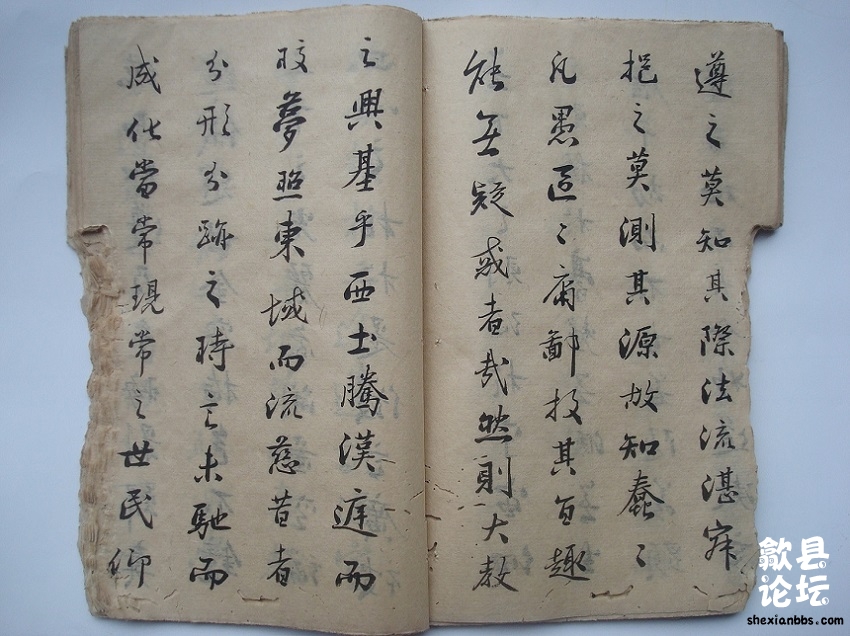 遵之莫知其際法流湛寂
挹之莫測其源故知蠢々
凡愚區々庸鄙投其旨趣
能無疑惑者哉然則大教
之興基乎西土騰漢庭而
皎夢照東域而流慈昔者
分形分跡之時言未馳而
成化當常現常之世民仰
歙县
论坛
shexianbbs.com